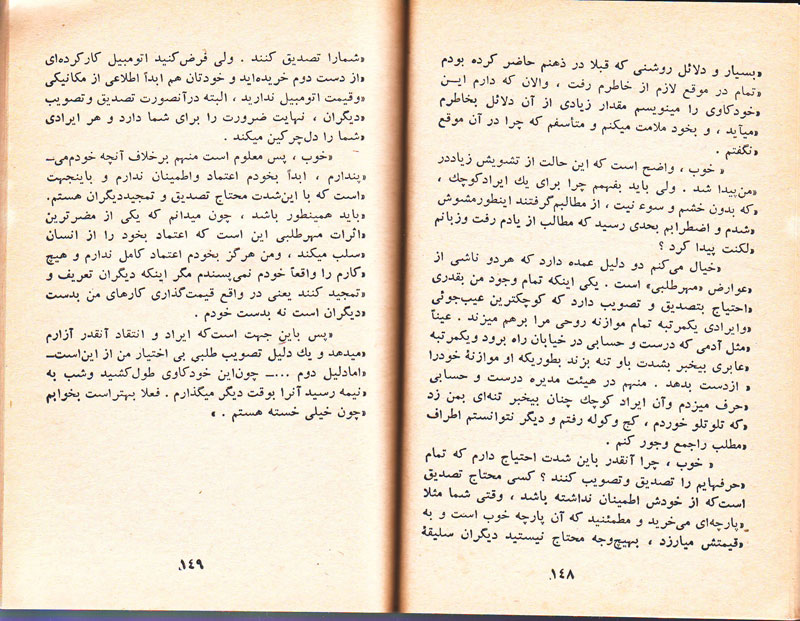 «بسیار و دلائل روشنی که قبلا در ذهنم حاضر کرده بودم
«تمام در موقع لازم از خاطرم رفت ، والان که دارم ایـن
«خودکاوی را مینویسم مقدار زیادی از آن دلائل بخاطرم
«میآید ، و بخود ملامت میکنم و متأسفم که چرا در آن موقع
«نگفتم .
« خوب ، واضح است که این حالت از تشویش زیاددر
«من‌پیدا شد . ولی باید بفهمم چرا برای یك ایرادکوچك ،
«که بدون خشم و سوء نیت ، از مطالبم‌گرفتند اینطورمشوش
«شدم و اضطرابم بحدی رسید که مطالب از یادم رفت وزبانم
«لکنت پیدا کرد ؟
«خیال می‌کنم دو دلیل عمده دارد که هردو ناشی از
«عوارض «مهرطلبی» است . یکی اینکه تمام وجود من بقدری
«احتیاج بتصدیق و تصویب دارد که کوچکترین عیب‌جوئی
«وایرادی یکمرتبه تمام موازنه روحی مرا برهم میزند . عیناً
«مثل آدمی که درست و حسابی در خیابان راه برود ویکمرتبه
«عابری بیخبر بشدت باو تنه بزند بطوریکه او موازنهٔ خودرا
« ازدست بدهد . منهم در هیئت مدیره درست و حسابی
«حرف میزدم وآن ایراد کوچك چنان بیخبر تنه‌ای بمن زد
«که تلوتلو خوردم ، کج وکوله رفتم و دیگر نتوانستم اطراف
«مطلب راجمع وجور کنم .
« خوب ، چرا آنقدر باین شدت احتیاج دارم که تمام
«حرفهایم را تصدیق وتصویب کنند ؟ کسی محتاج تصدیق
است‌که از خودش اطمینان نداشته باشد ، وقتی شما مثلا
«پارچه‌ای می‌خرید و مطمئنید که آن پارچه خوب است و به
«قیمتش میارزد ، بهیچ‌وجه محتاج نیستید دیگران سلیقهٔ
۱۴۸
«شمارا تصدیق کنند . ولی فرض‌کنید اتومبیل کارکرده‌ای
«از دست دوم خریده‌اید و خودتان هم ابداً اطلاعی از مکانیکی
«وقیمت اتومبیل ندارید ، البته درآنصورت تصدیق وتصویب
«دیگران ، نهایت ضرورت را برای شما دارد و هر ایرادی
«شما را دل‌چرکین میکند .
«خوب ، پس معلوم است منهم برخلاف آنچه خودم‌می‌ـ
«پندارم ، ابداً بخودم اعتماد واطمینان ندارم و باینجهت
«است که با این‌شدت محتاج تصدیق و تمجیددیگران هستم.
«باید همینطور باشد ، چون میدانم که یکی از مضرترین
«اثرات مهرطلبی این است که اعتماد بخود را از انسان
«سلب میکند ، ومن هرگز بخودم اعتماد کامل ندارم و هیچ
«کارم را واقعاً خودم نمی‌پسندم مگر اینکه دیگران تعریف و
«تمجید کنند یعنی در واقع قیمت‌گذاری کارهای من بدست
«دیگران است نه بدست خودم .
«پس باین جهت است‌که ایراد و انتقاد آنقدر آزارم
«میدهد و یك دلیل تصویب طلبی بی اختیار من از این‌است‌ـ
«امادلیل دوم ...ـ چون‌این خودکاوی طول‌کشید وشب به
«نیمه رسید آنرا بوقت دیگر میگذارم . فعلا بهتراست بخوابم
«چون خیلی خسته هستم . »
۱۴۹